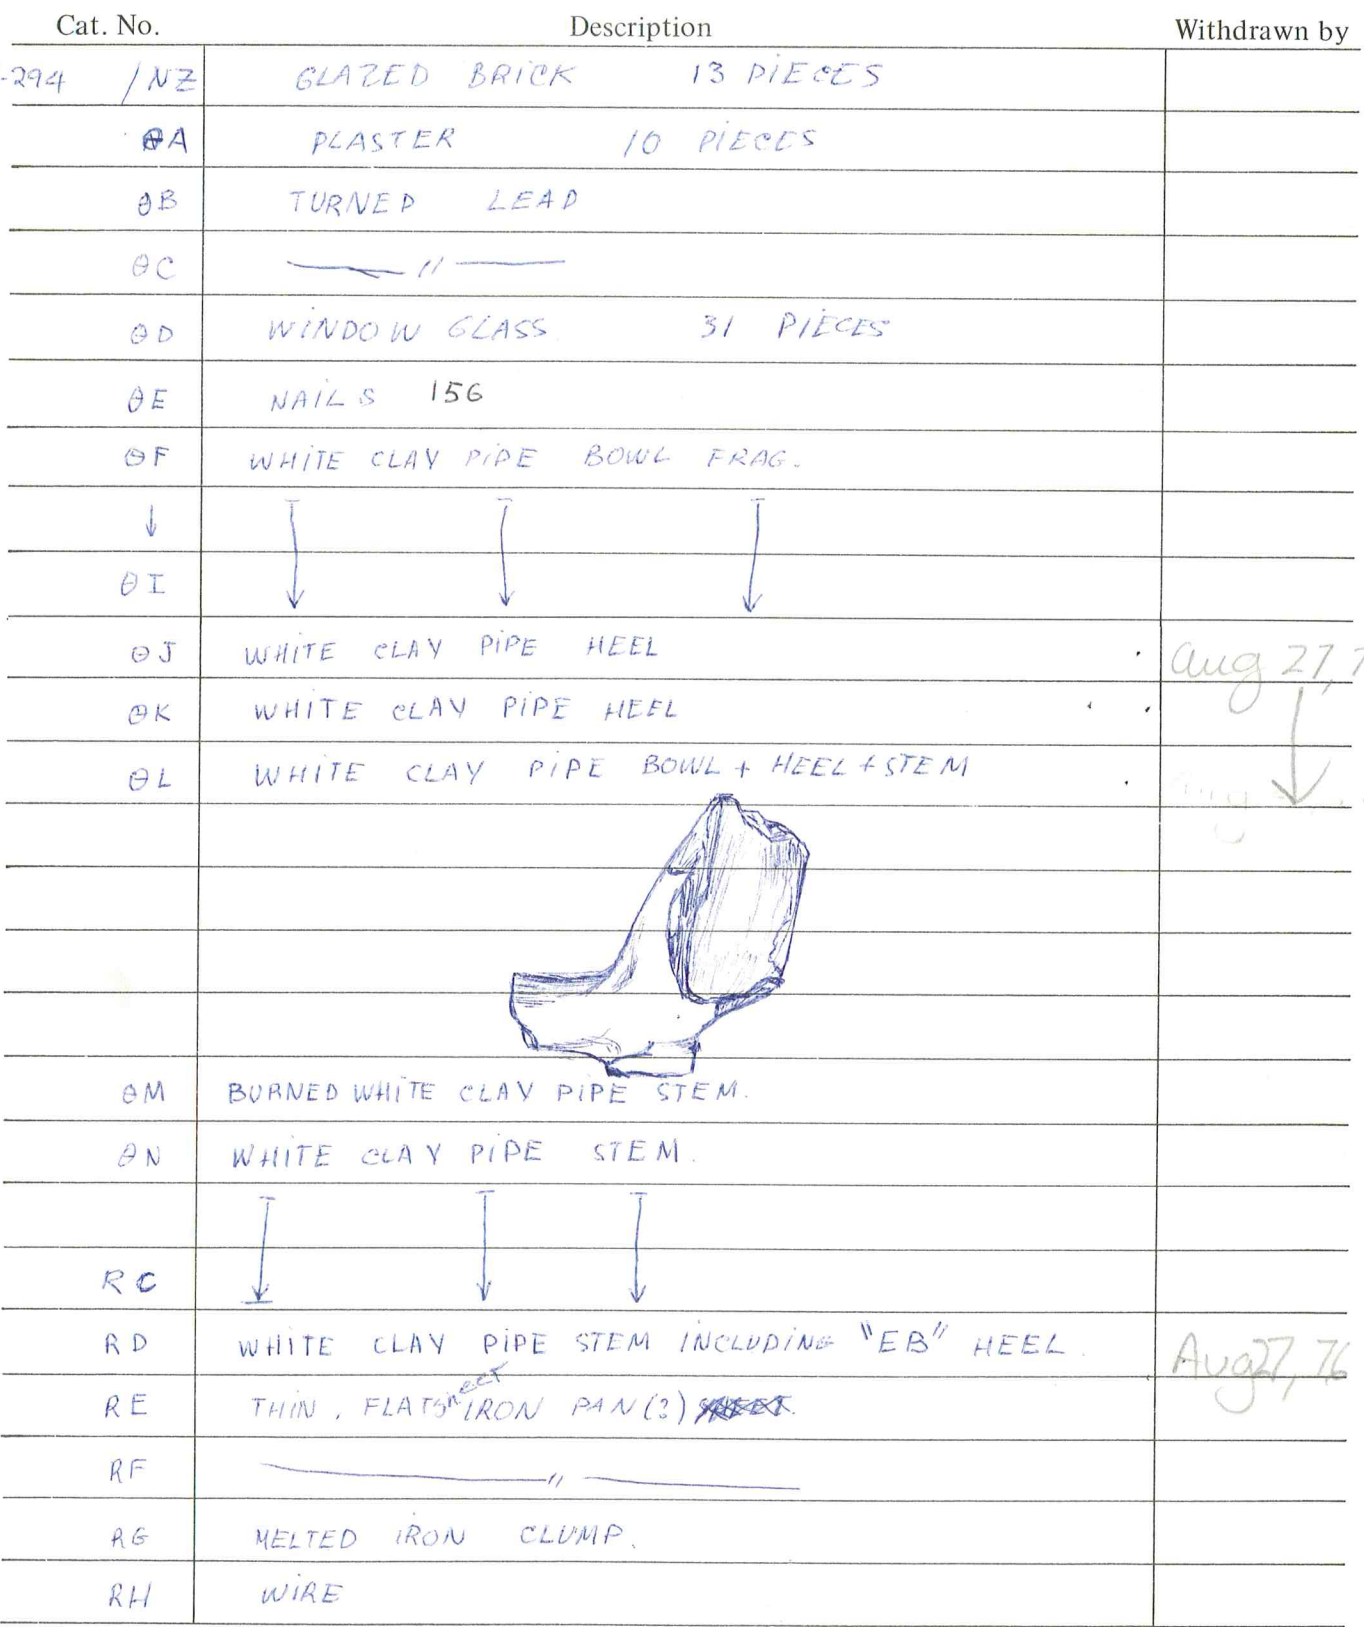 Cat. No. Description Withdrawn by
-294 /NZ GLAZED BRICK 13 PIECES
θA PLASTER 10 PIECES
θB TURNED LEAD
θC —— " ——
θD WINDOW GLASS 31 PIECES
θE NAILS 156
θF WHITE CLAY PIPE BOWL FRAG.
↓ ↓ ↓ ↓
θI
θJ WHITE CLAY PIPE HEEL Aug 27, 7
θK WHITE CLAY PIPE HEEL
θL WHITE CLAY PIPE BOWL + HEEL + STEM
θM BURNED WHITE CLAY PIPE STEM.
θN WHITE CLAY PIPE STEM.
↓ ↓ ↓
RC
RD WHITE CLAY PIPE STEM INCLUDING "EB" HEEL. Aug 27, 76
RE THIN, FLAT sheet IRON PAN (?)
RF —— " ——
RG MELTED IRON CLUMP.
RH WIRE